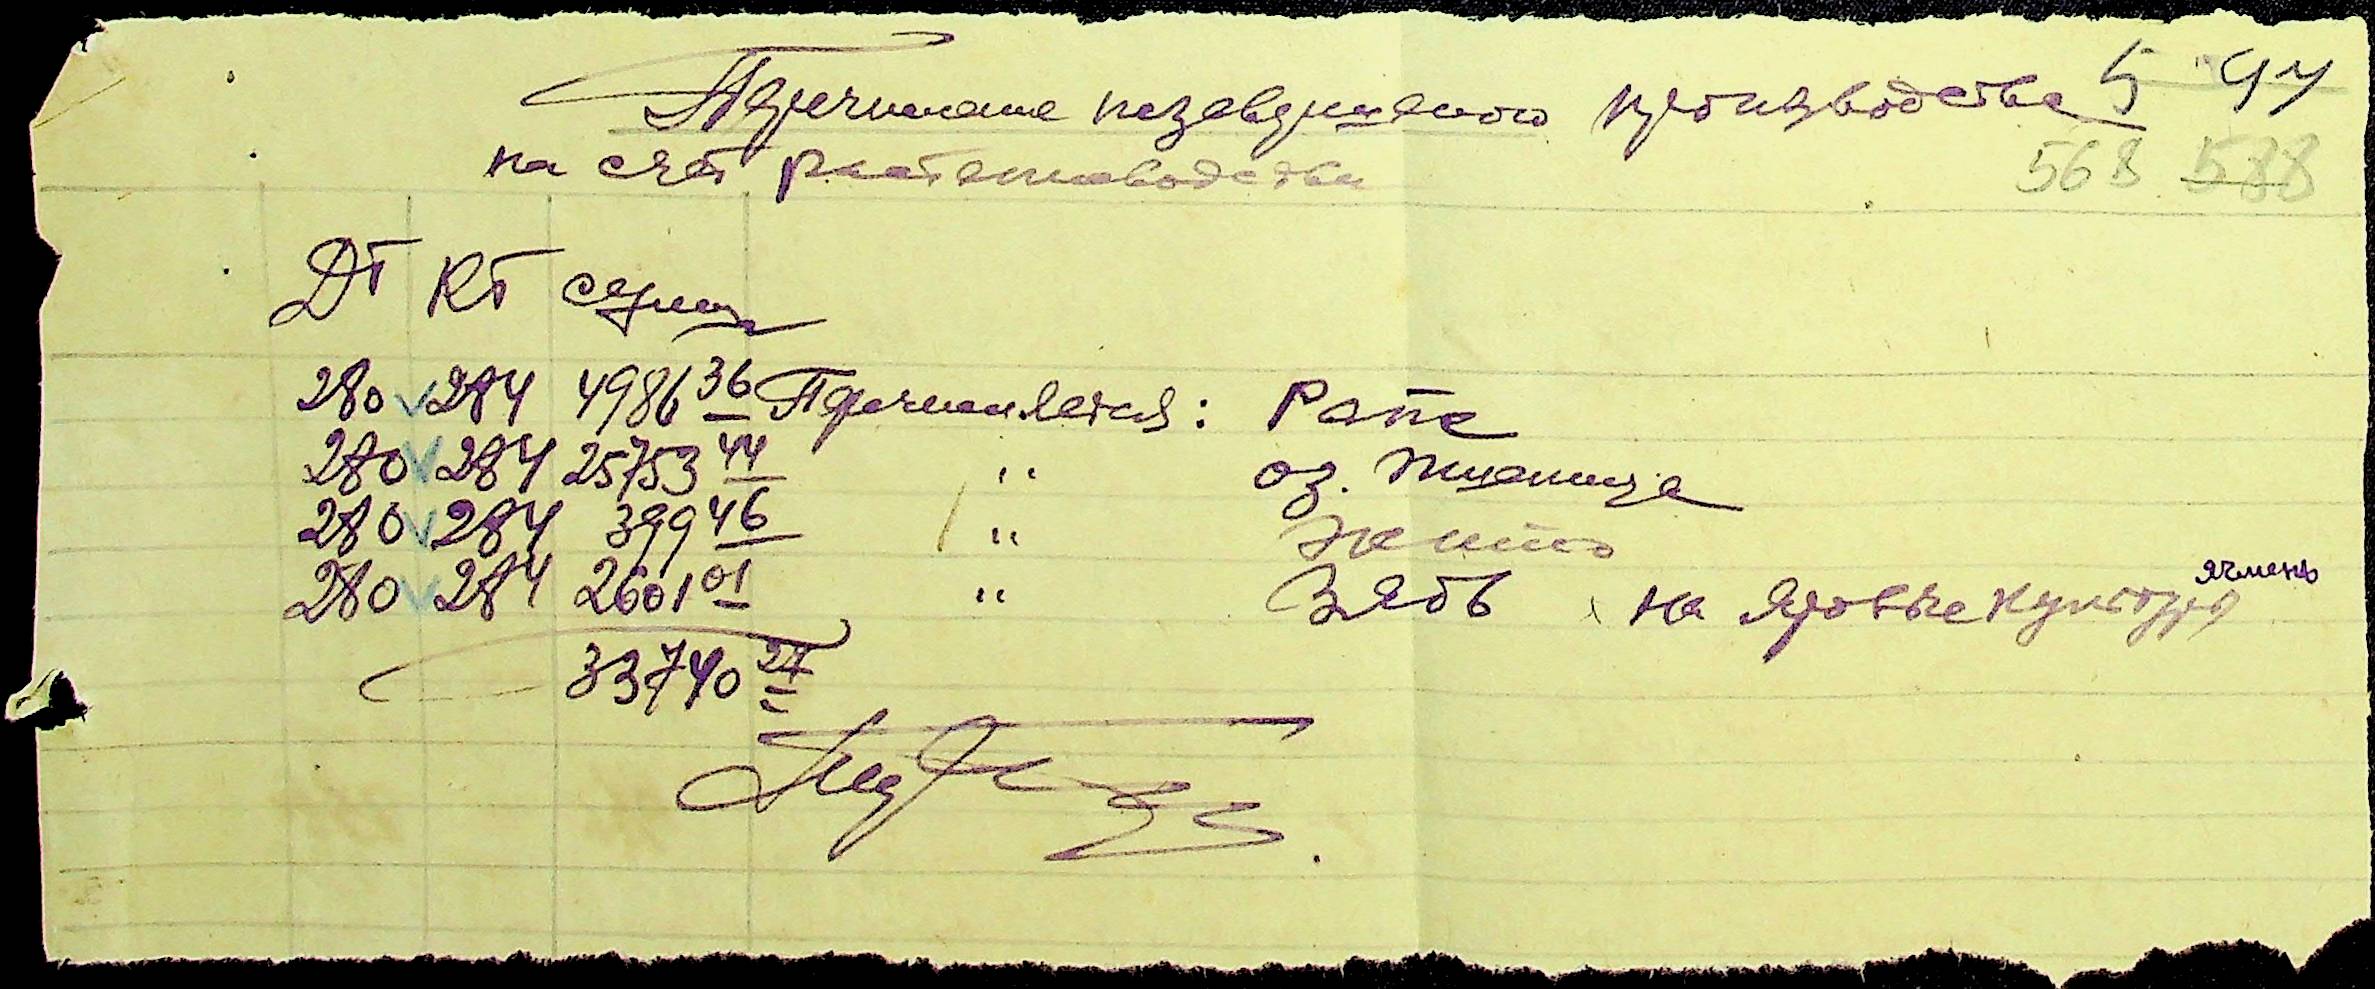 Перечисление незавершеного производства 5
на счёт растениеводства 568 588
Дт Кт сумма
280 284 4986 36 Перечисляется: Рапс
280 284 25753 44 " оз. пшеница
280 284 399 46 "
280 284 2601 01 " Зябь на яровые культуры ячмень
33740 27